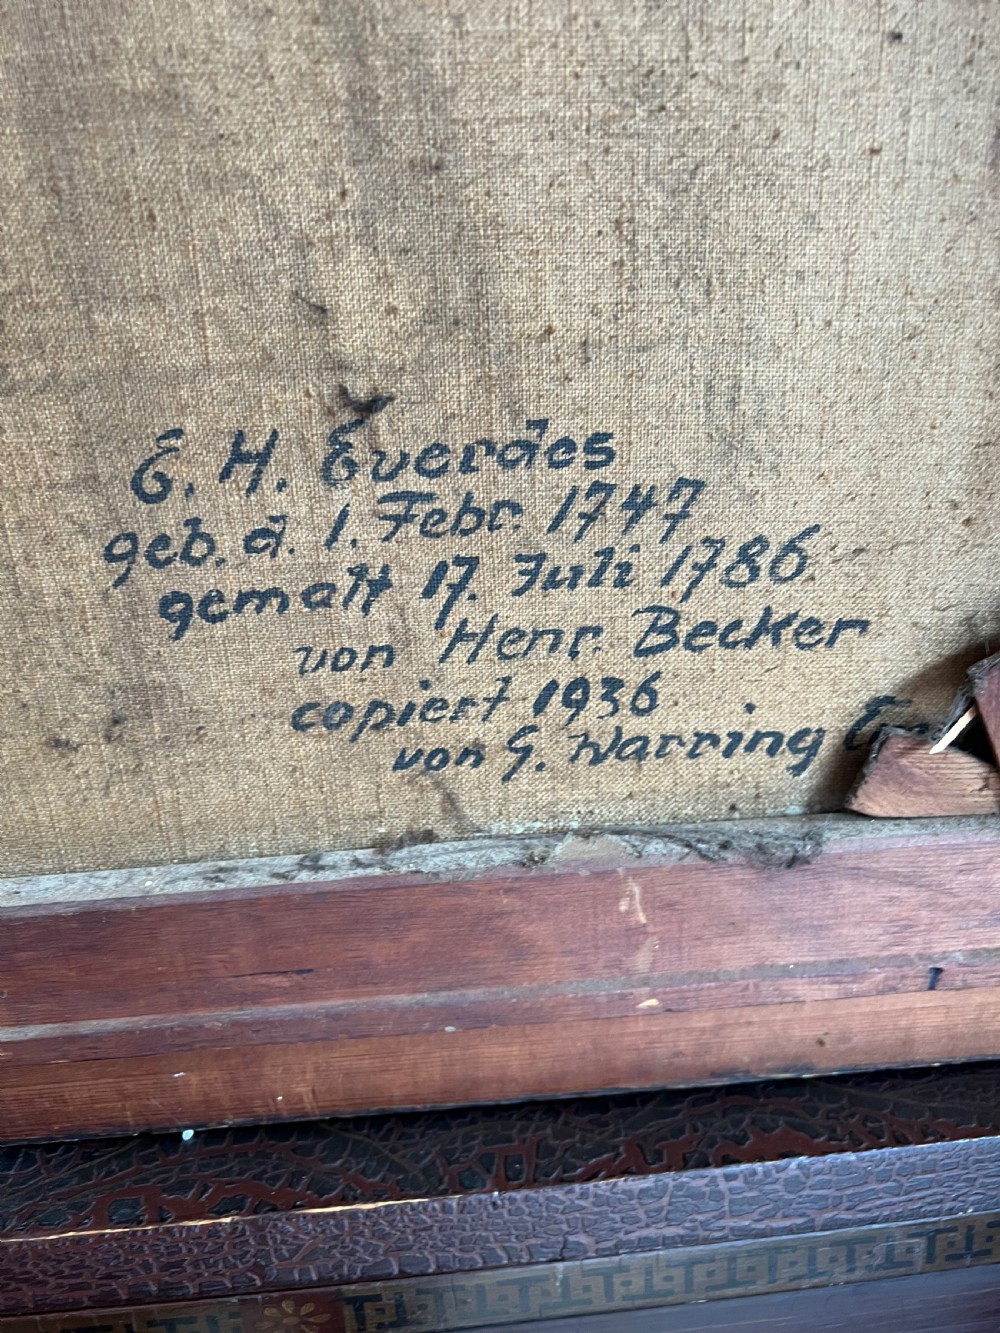 E. H. Everdes
geb. d. 1. Febr. 1747
gemalt 17. Juli 1786
von Henr. Becker
copiert 1936
von G. Warring